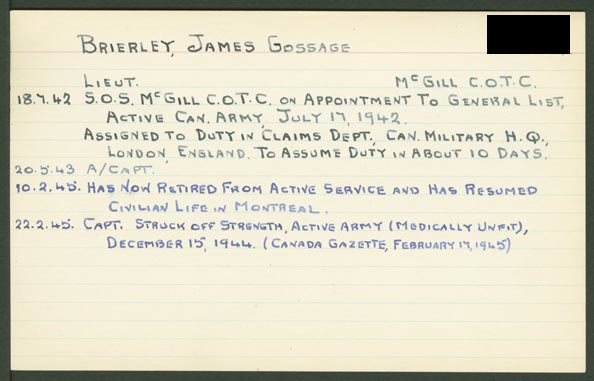 BRIERLEY, JAMES GOSSAGE
LIEUT. McGILL C.O.T.C.
18.7.42 S.O.S. McGILL C.O.T.C. ON APPOINTMENT TO GENERAL LIST,
ACTIVE CAN. ARMY, JULY 17, 1942.
ASSIGNED TO DUTY IN CLAIMS DEPT., CAN. MILITARY H.Q.,
LONDON, ENGLAND. TO ASSUME DUTY IN ABOUT 10 DAYS.
20.5.43 A/CAPT.
10.2.45. HAS NOW RETIRED FROM ACTIVE SERVICE AND HAS RESUMED
CIVILIAN LIFE IN MONTREAL.
22.2.45. CAPT. STRUCK OFF STRENGTH, ACTIVE ARMY (MEDICALLY UNFIT),
DECEMBER 15, 1944. (CANADA GAZETTE, FEBRUARY 17, 1945)